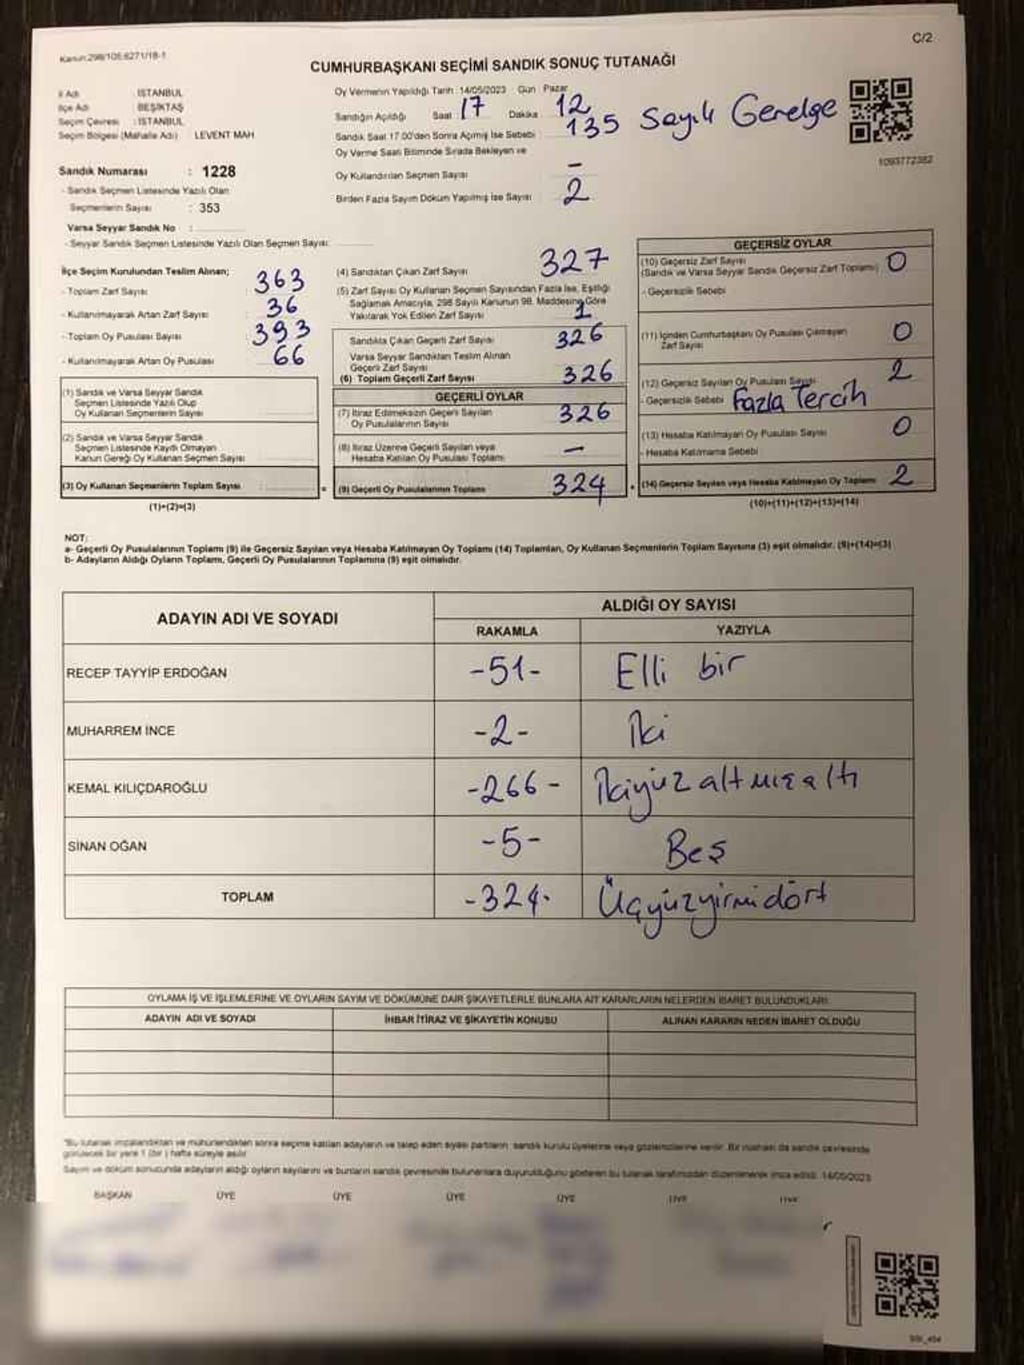 Kanun:298/105;6271/18-1
C/2
CUMHURBAŞKANI SEÇİMİ SANDIK SONUÇ TUTANAĞI
İl Adı : İSTANBUL
İlçe Adı : BEŞİKTAŞ
Seçim Çevresi : İSTANBUL
Seçim Bölgesi (Mahalle Adı) : LEVENT MAH
Sandık Numarası : 1228
- Sandık Seçmen Listesinde Yazılı Olan
Seçmenlerin Sayısı : 353
Varsa Seyyar Sandık No :
- Seyyar Sandık Seçmen Listesinde Yazılı Olan Seçmen Sayısı:
Oy Vermenin Yapıldığı Tarih :14/05/2023 Gün : Pazar
Sandığın Açıldığı Saat : 17 Dakika : 12
Sandık Saat 17.00'den Sonra Açılmış İse Sebebi : 135 Sayılı Genelge
Oy Verme Saati Bitiminde Sırada Bekleyen ve
Oy Kullandırılan Seçmen Sayısı –
Birden Fazla Sayım Döküm Yapılmış İse Sayısı 2
1093772382
İlçe Seçim Kurulundan Teslim Alınan;
- Toplam Zarf Sayısı : 363
- Kullanılmayarak Artan Zarf Sayısı : 36
- Toplam Oy Pusulası Sayısı : 393
- Kullanılmayarak Artan Oy Pusulası : 66
(1) Sandık ve Varsa Seyyar Sandık
Seçmen Listesinde Yazılı Olup
Oy Kullanan Seçmenlerin Sayısı
(2) Sandık ve Varsa Seyyar Sandık
Seçmen Listesinde Kayıtlı Olmayan
Kanun Gereği Oy Kullanan Seçmen Sayısı
(3) Oy Kullanan Seçmenlerin Toplam Sayısı :
(1)+(2)=(3)
(4) Sandıktan Çıkan Zarf Sayısı 327
(5) Zarf Sayısı Oy Kullanan Seçmen Sayısından Fazla İse, Eşitliği
Sağlamak Amacıyla, 298 Sayılı Kanunun 98. Maddesine Göre
Yakılarak Yok Edilen Zarf Sayısı 1
Sandıkta Çıkan Geçerli Zarf Sayısı 326
Varsa Seyyar Sandıktan Teslim Alınan
Geçerli Zarf Sayısı
(6) Toplam Geçerli Zarf Sayısı 326
GEÇERLİ OYLAR
(7) İtiraz Edilmeksizin Geçerli Sayılan
Oy Pusulalarının Sayısı 326
(8) İtiraz Üzerine Geçerli Sayılan veya
Hesaba Katılan Oy Pusulası Toplamı –
= (9) Geçerli Oy Pusulalarının Toplamı 324
GEÇERSİZ OYLAR
(10) Geçersiz Zarf Sayısı
(Sandık ve Varsa Seyyar Sandık Geçersiz Zarf Toplamı) 0
- Geçersizlik Sebebi
(11) İçinden Cumhurbaşkanı Oy Pusulası Çıkmayan
Zarf Sayısı 0
(12) Geçersiz Sayılan Oy Pusulası Sayısı 2
- Geçersizlik Sebebi Fazla Tercih
(13) Hesaba Katılmayan Oy Pusulası Sayısı 0
- Hesaba Katılmama Sebebi
+ (14) Geçersiz Sayılan veya Hesaba Katılmayan Oy Toplamı 2
(10)+(11)+(12)+(13)=(14)
NOT:
a- Geçerli Oy Pusulalarının Toplamı (9) ile Geçersiz Sayılan veya Hesaba Katılmayan Oy Toplamı (14) Toplamları, Oy Kullanan Seçmenlerin Toplam Sayısına (3) eşit olmalıdır. (9)+(14)=(3)
b- Adayların Aldığı Oyların Toplamı, Geçerli Oy Pusulalarının Toplamına (9) eşit olmalıdır.
ADAYIN ADI VE SOYADI
ALDIĞI OY SAYISI
RAKAMLA YAZIYLA
RECEP TAYYİP ERDOĞAN -51- Elli bir
MUHARREM İNCE -2- İki
KEMAL KILIÇDAROĞLU -266- İkiyüz altmışaltı
SİNAN OĞAN -5- Beş
TOPLAM -324- Üçyüzyirmidört
OYLAMA İŞ VE İŞLEMLERİNE VE OYLARIN SAYIM VE DÖKÜMÜNE DAİR ŞİKAYETLERLE BUNLARA AİT KARARLARIN NELERDEN İBARET BULUNDUKLARI
ADAYIN ADI VE SOYADI İHBAR İTİRAZ VE ŞİKAYETİN KONUSU ALINAN KARARIN NEDEN İBARET OLDUĞU
*Bu tutanak imzalandıktan ve mühürlendikten sonra seçime katılan adayların ve talep eden siyasi partilerin sandık kurulu üyelerine veya gözlemcilerine verilir. Bir nüshası da sandık çevresinde
görülecek bir yere 1 (bir) hafta süreyle asılır.
Sayım ve döküm sonucunda adayların aldığı oyların sayılarını ve bunların sandık çevresinde bulunanlara duyurulduğunu gösteren bu tutanak tarafımızdan düzenlenerek imza edildi. 14/05/2023
BAŞKAN ÜYE ÜYE ÜYE ÜYE ÜYE ÜYE